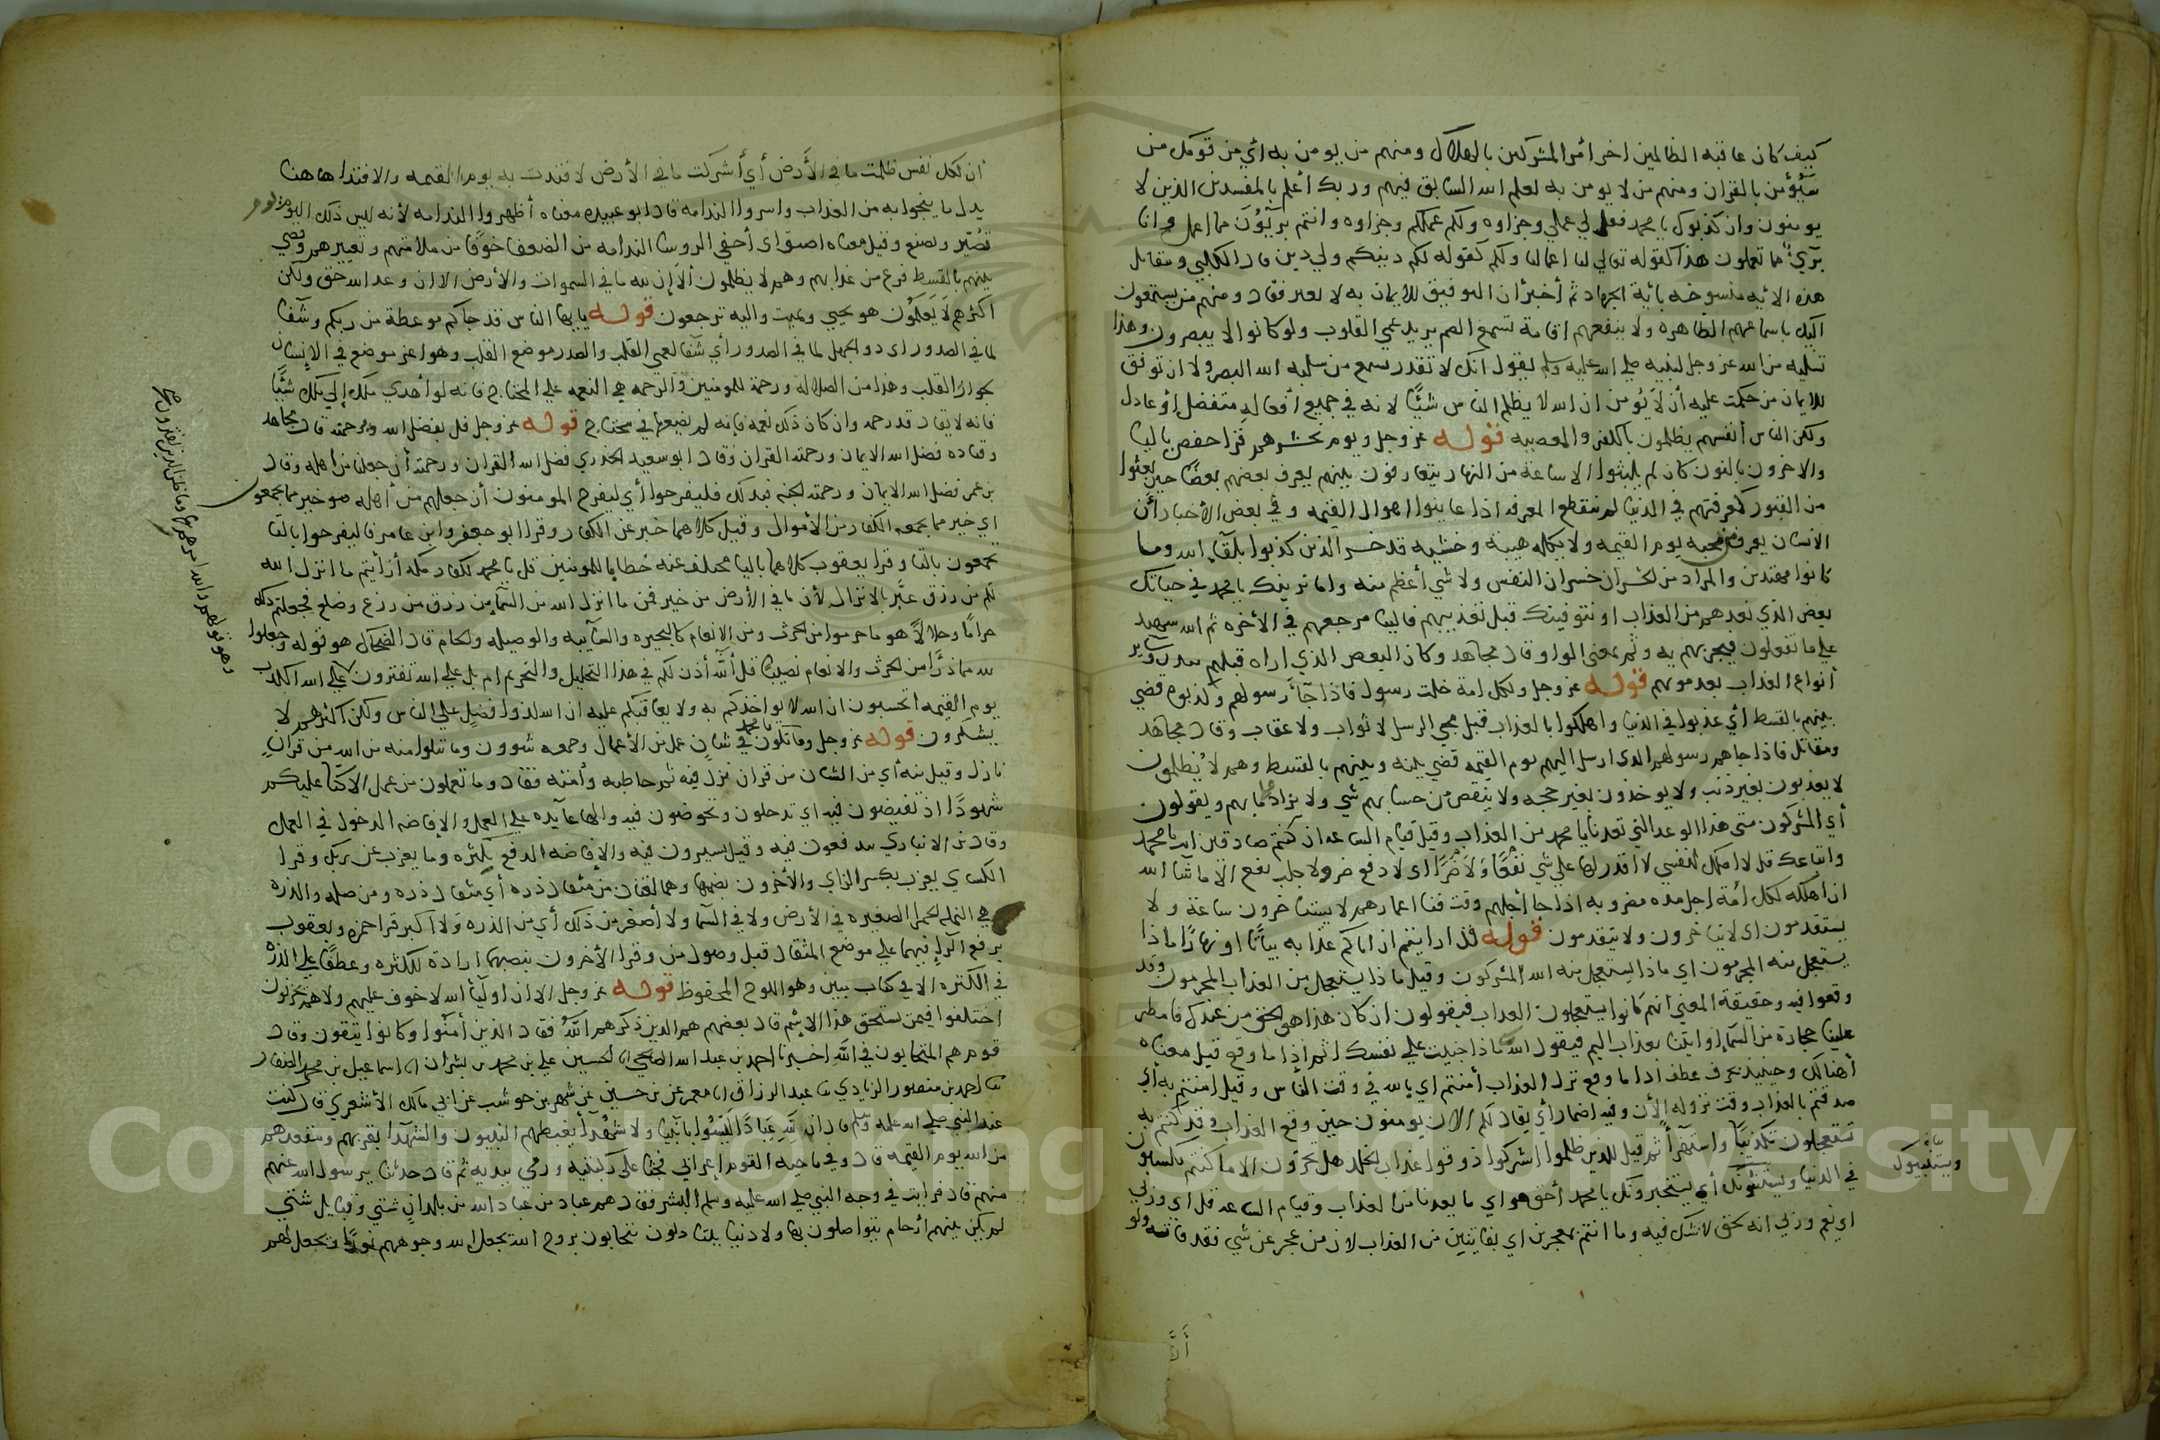 كيف كان عاقبة الظالمين اخر امر المشركين بالهلاك ومنهم من يومن به اي من قومك من
سيؤمن بالقران ومنهم من لا يومن به لعلم الله السابق فيهم وربك أعلم بالمفسدين الذين لا
يومنون وان كذبوك يا محمد فقل لي عملي وجزاوه ولكم عملكم وجزاوه وانتم بريئون مما اعمل وانا
بريء مما تعملون هذا كقوله تعالي لنا اعمالنا ولكم كقوله لكم دينكم ولي دين قال الكلبي ومقاتل
هذه الايه منسوخه باية الجهاد ثم أخبر ان التوفيق للايمان به لا بغيره فقال ومنهم من يستمعون
اليك باسماعهم الظاهره ولا ينفعهم افانت تسمع الصم يريد عمي القلوب ولو كانوا لا يبصرون وهذا
تسليه من الله عز وجل لنبيه صلي الله عليه وسلم يقول انك لا تقدر تسمع من سلبه الله السمع ولا ان توفق
للايمان من حكمت عليه أن لا يؤمن ان الله لا يظلم الناس شيئًا لانه في جميع أفعاله متفضل أو عادل
ولكن الناس أنفسهم يظلمون بالكفر والمعصيه قوله عز وجل ويوم نحشرهم قرا حفص باليا
والاخرون بالنون كان لم يلبثوا الا ساعة من النهار يتعارفون بينهم يعرف بعضهم بعضًا حين بعثوا
من القبور كمعرفتهم في الدنيا ثم تنقطع المعرفه اذا عاينوا اهوال القيمه وفي بعض الأخبار أن
الانسان يعرف من بجنبه يوم القيمه ولا يكلمه هيبة وخشيه قد خسر الذين كذبوا بلقاء الله وما
كانوا مهتدين والمراد من الخسران خسران النفس ولا شي أعظم منه واما نرينك يا محمد في حياتك
بعض الذي نعدهم من العذاب او نتوفينك قبل تعذيبهم فالينا مرجعهم في الأخره ثم الله شهيد
علي ما تفعلون فيجزيهم به وثم بمعني الواو قال مجاهد وكان البعض الذي اراه قبلهم ببدر وساير
أنواع العذاب بعد موتهم قوله عز وجل ولكل امة خلت رسول فاذا جآء رسولهم وكذبوه قضي
بينهم بالقسط أي عذبوا في الدنيا واهلكوا بالعذاب قبل مجي الرسل لا ثواب ولا عقاب وقال مجاهد
ومقاتل فاذا جاهم رسولهم الذي ارسل اليهم يوم القيمه قضي بينه وبينهم بالقسط وهم لا يُظلمون
لا يعذبون بغير ذنب ولا يوخذون بغير حجه ولا ينقص من حسناتهم شي ولا يزاد ويقولون
أي المشركون متي هذا الوعد الذي تعدنا يا محمد من العذاب وقيل قيام الساعه ان كنتم صادقين انت يا محمد
واتباعك قل لا املك لنفسي لا اقدر لها علي شي نفعًا ولا ضرًا اي لا دفع ضر ولا جلب نفع الا ما شآ الله
ان املكه لكل أمة اجل مده مضروبه اذا جا أجلهم وقت فنا اعمارهم لا يستاخرون ساعة ولا
يستقدمون اي لا يتاخرون ولا يتقدمون قوله قل ارايتم ان اتاكم عذابه بياتا او نهارًا ماذا
يستعجل منه المجرمون اي ماذا يستعجل منه الله المشركون وقيل ماذا يستعجل من العذاب المجرمون وقد
وقعوا فيه وحقيقة المعني انهم كانوا يستعجلون العذاب فيقولون ان كان هذا هو الحق من عندك فامطر
علينا حجارة من السمآ او ايتنا بعذاب اليم فيقول الله ماذا جنيت علي نفسك اثم إذا ما وقع قيل معناه
أهنالك وحينيذ حرف عطف اذا ما وقع نزل العذاب أمنتم اي بالله في وقت الياس وقيل امنتم به أي
صدقتم بالعذاب وقت نزوله الأن وفيه اضمار أي يقال لكم الان يومنون حين وقع العذاب وقد كنتم به
تستعجلون تكذيبًا واستهزآ ثم قيل للذين ظلموا أشركوا ذوقوا عذاب الخلد هل تجزون الا ما كنتم تكسبون
في الدنيا ويستنبئونك أي يستخبرونك يا محمد أحق هو اي ما يعدنا من العذاب وقيام الساعه قل اي وربي
اي نعم وربي انه لحق لا شك فيه وما انتم بمعجزين اي بفايتين من العذاب لان من عجز عن شي فقد فاته ولو
ويستنبئونك
ان لكل نفس ظلمت ما في الأرض أي أشركت ما في الأرض لافتدت به يوم القيمه والافتدا هاهنا
بدل ما ينجوا به من العذاب واسروا الندامه قال ابو عبيده معناه أظهروا الندامه لأنه ليس ذلك اليوم يوم
تصبّر وتصنع وقيل معناه اخفوا اي أخفي الروسا الندامه من الضعفا خوفًا من ملامتهم وتعييرهم وقضي
بينهم بالقسط فرغ من عذابهم وهم لا يظلمون ألا إن لله ما في السموات والأرض الا ان وعد الله حق ولكن
اكثرهم لا يعلمون هو يحيي ويميت واليه ترجعون قوله يا يها الناس قد جاكم موعظة من ربكم وشفآ
لما في الصدور اي دوا الجهل لما في الصدور أي شفا لعمي القلب والصدر موضع القلب وهو اعز موضع في الإنسان
لجوار القلب وهدًا من الضلالة ورحمة للمومنين والرحمه هي النعمه علي المحتاج فانه لو أهدي ملك إلي ملك شيئًا
فانه لا يقال قد رحمه وان كان ذلك نعمه فإنه لم يضعها في محتاج قوله عز وجل قل بفضل الله وبرحمته قال مجاهد
وقتاده فضل الله الايمان ورحمته القران وقال ابو سعيد الخدري فضل الله القران ورحمته أن جعلنا من أهله وقال
بن عمر فضل الله الايمان ورحمته الجنه فبذلك فليفرحوا أي ليفرح المومنون أن جعلهم من أهله هو خير مما يجمعون
اي خير مما يجمعه الكفار من الأموال وقيل كلاهما خبر عن الكفار وقرا ابو جعفر وابن عامر فليفرحوا باليا
تجمعون بالتا وقرا يعقوب كلاهما بالتا مختلف عنه خطابا للمومنين قل يا محمد لكفار مكه أرأيتم ما انزل الله
لكم من رزق عبّر بالانزال لأن ما في الأرض من خير فمن ما انزل الله من السمآ من رزق من زرع وضرع فجعلتم منه
حرامًا وحلالاً هو ما حرموا من الحرث ومن الانعام كالبحيره والسآيبه والوصيله والحام قال الضحاك هو قوله وجعلوا
لله مما ذرأ من الحرث والانعام نصيبا قل ألله أذن لكم في هذا التحليل والتحريم ام بل علي الله تفترون علي الله الكذب
يوم القيمه اتحسبون ان الله لا يواخذكم به ولا يعاقبكم عليه ان الله لذو فضل علي الناس ولكن اكثرهم لا
يشكرون قوله عز وجل وما تكون يا محمد في شان عمل من الأعمال وجمعه شوون وما تتلوا منه من الله من قران
نازل وقيل منه أي من الشان من قران نزل فيه ثم خاطبه وأمته فقال وما تعملون من عمل الا كنا عليكم
شهودًا اذ تفيضون فيه اي تدخلون وتخوضون فيه والها عآيده علي العمل والإفاضه الدخول في العمل
وقال بن الانباري تندفعون فيه وقيل تسيرون فيه والإفاضه الدفع بكثره وما يعزب عن ربك وقرا
الكساي يعزب بكسر الزاي والأخرون بضمها وهما لغتان من مثقال ذره أي مثقال ذره ومن صله والذره
هي النمله الحمرا الصغيره في الأرض ولا في السمآ ولا أصغر من ذلك أي من الذره ولا أكبر قرا حمزه ويعقوب
برفع الرا فيهما علي موضع المثقال قبل دخول من وقرا الأخرون بنصبهما ارادة للكثره وعطفًا علي الذره
في الكثره الا في كتاب مبين وهو اللوح المحفوظ قوله عز وجل الا ان اوليآ الله لا خوف عليهم ولا هم يحزنون
اختلفوا فيمن يستحق هذا الاسم قال بعضهم هم الذين ذكرهم الله فقال الذين أمنوا وكانوا يتقون وقال
قوم هم المتحابون في الله اخبرنا احمد بن عبد الله الصالحي انا الحسين علي بن محمد بن بشران انا اسماعيل بن محمد الصفار
ثنا احمد بن منصور الزيادي ثنا عبد الرزاق انا معمر عن بن حسين عن شهر بن حوشب عن ابي مالك الأشعري قال كنت
عند النبي صلي الله عليه وسلم قال ان لله عبادًا ليسوا بانبيآ ولا شهدآ يغبطهم النبيون والشهدآ بقربهم ومقعدهم
من الله يوم القيمه قال وفي ناحيه القوم إعرابي فجثا علي ركبتيه ورمي بيديه ثم قال حدثنا يرسول الله عنهم
منهم قال فرايت في وجه النبي صلي الله عليه وسلم البشر فقال هم عباد من عباد الله من بلدان شتي وقبايل شتي
لم يكن بينهم أرحام يتواصلون بها ولا دنيا يتباذلون بها يتحابون بروح الله يجعل الله وجوههم نورًا ويجعل لهم